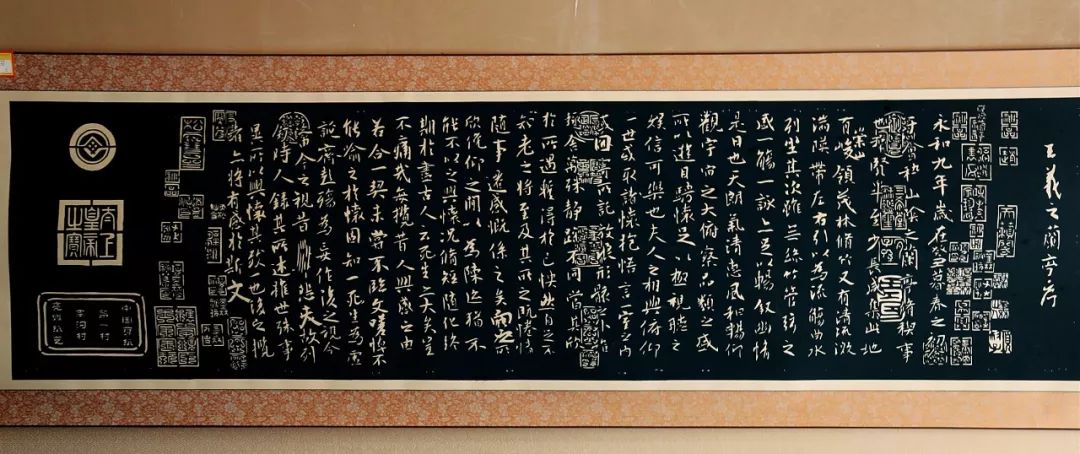 王羲之蘭亭序
永和九年歲在癸丑暮春之初會
于會稽山陰之蘭亭脩稧事
也群賢畢至少長咸集此地
有崇山峻領茂林脩竹又有清流激
湍暎帶左右引以為流觴曲水
列坐其次雖無絲竹管弦之
盛一觴一詠亦足以暢敘幽情
是日也天朗氣清惠風和暢仰
觀宇宙之大俯察品類之盛
所以遊目騁懷足以極視聽之
娛信可樂也夫人之相與俯仰
一世或取諸懷抱悟言一室之內
或因寄所託放浪形骸之外雖
趣舍萬殊靜躁不同當其欣
於所遇蹔得於己怏然自足不
知老之將至及其所之既惓情
隨事遷感慨係之矣向之所
欣俛仰之間以為陳跡猶不
能不以之興懷況脩短隨化終
期於盡古人云死生亦大矣豈
不痛哉每攬昔人興感之由
若合一契未嘗不臨文嗟悼不
能喻之於懷固知一死生為虛
誕齊彭殤為妄作後之視今
亦由今之視昔悲夫故列
敘時人錄其所述雖世殊事
異所以興懷其致一也後之攬
者亦將有感於斯文
太上
皇帝
之寶